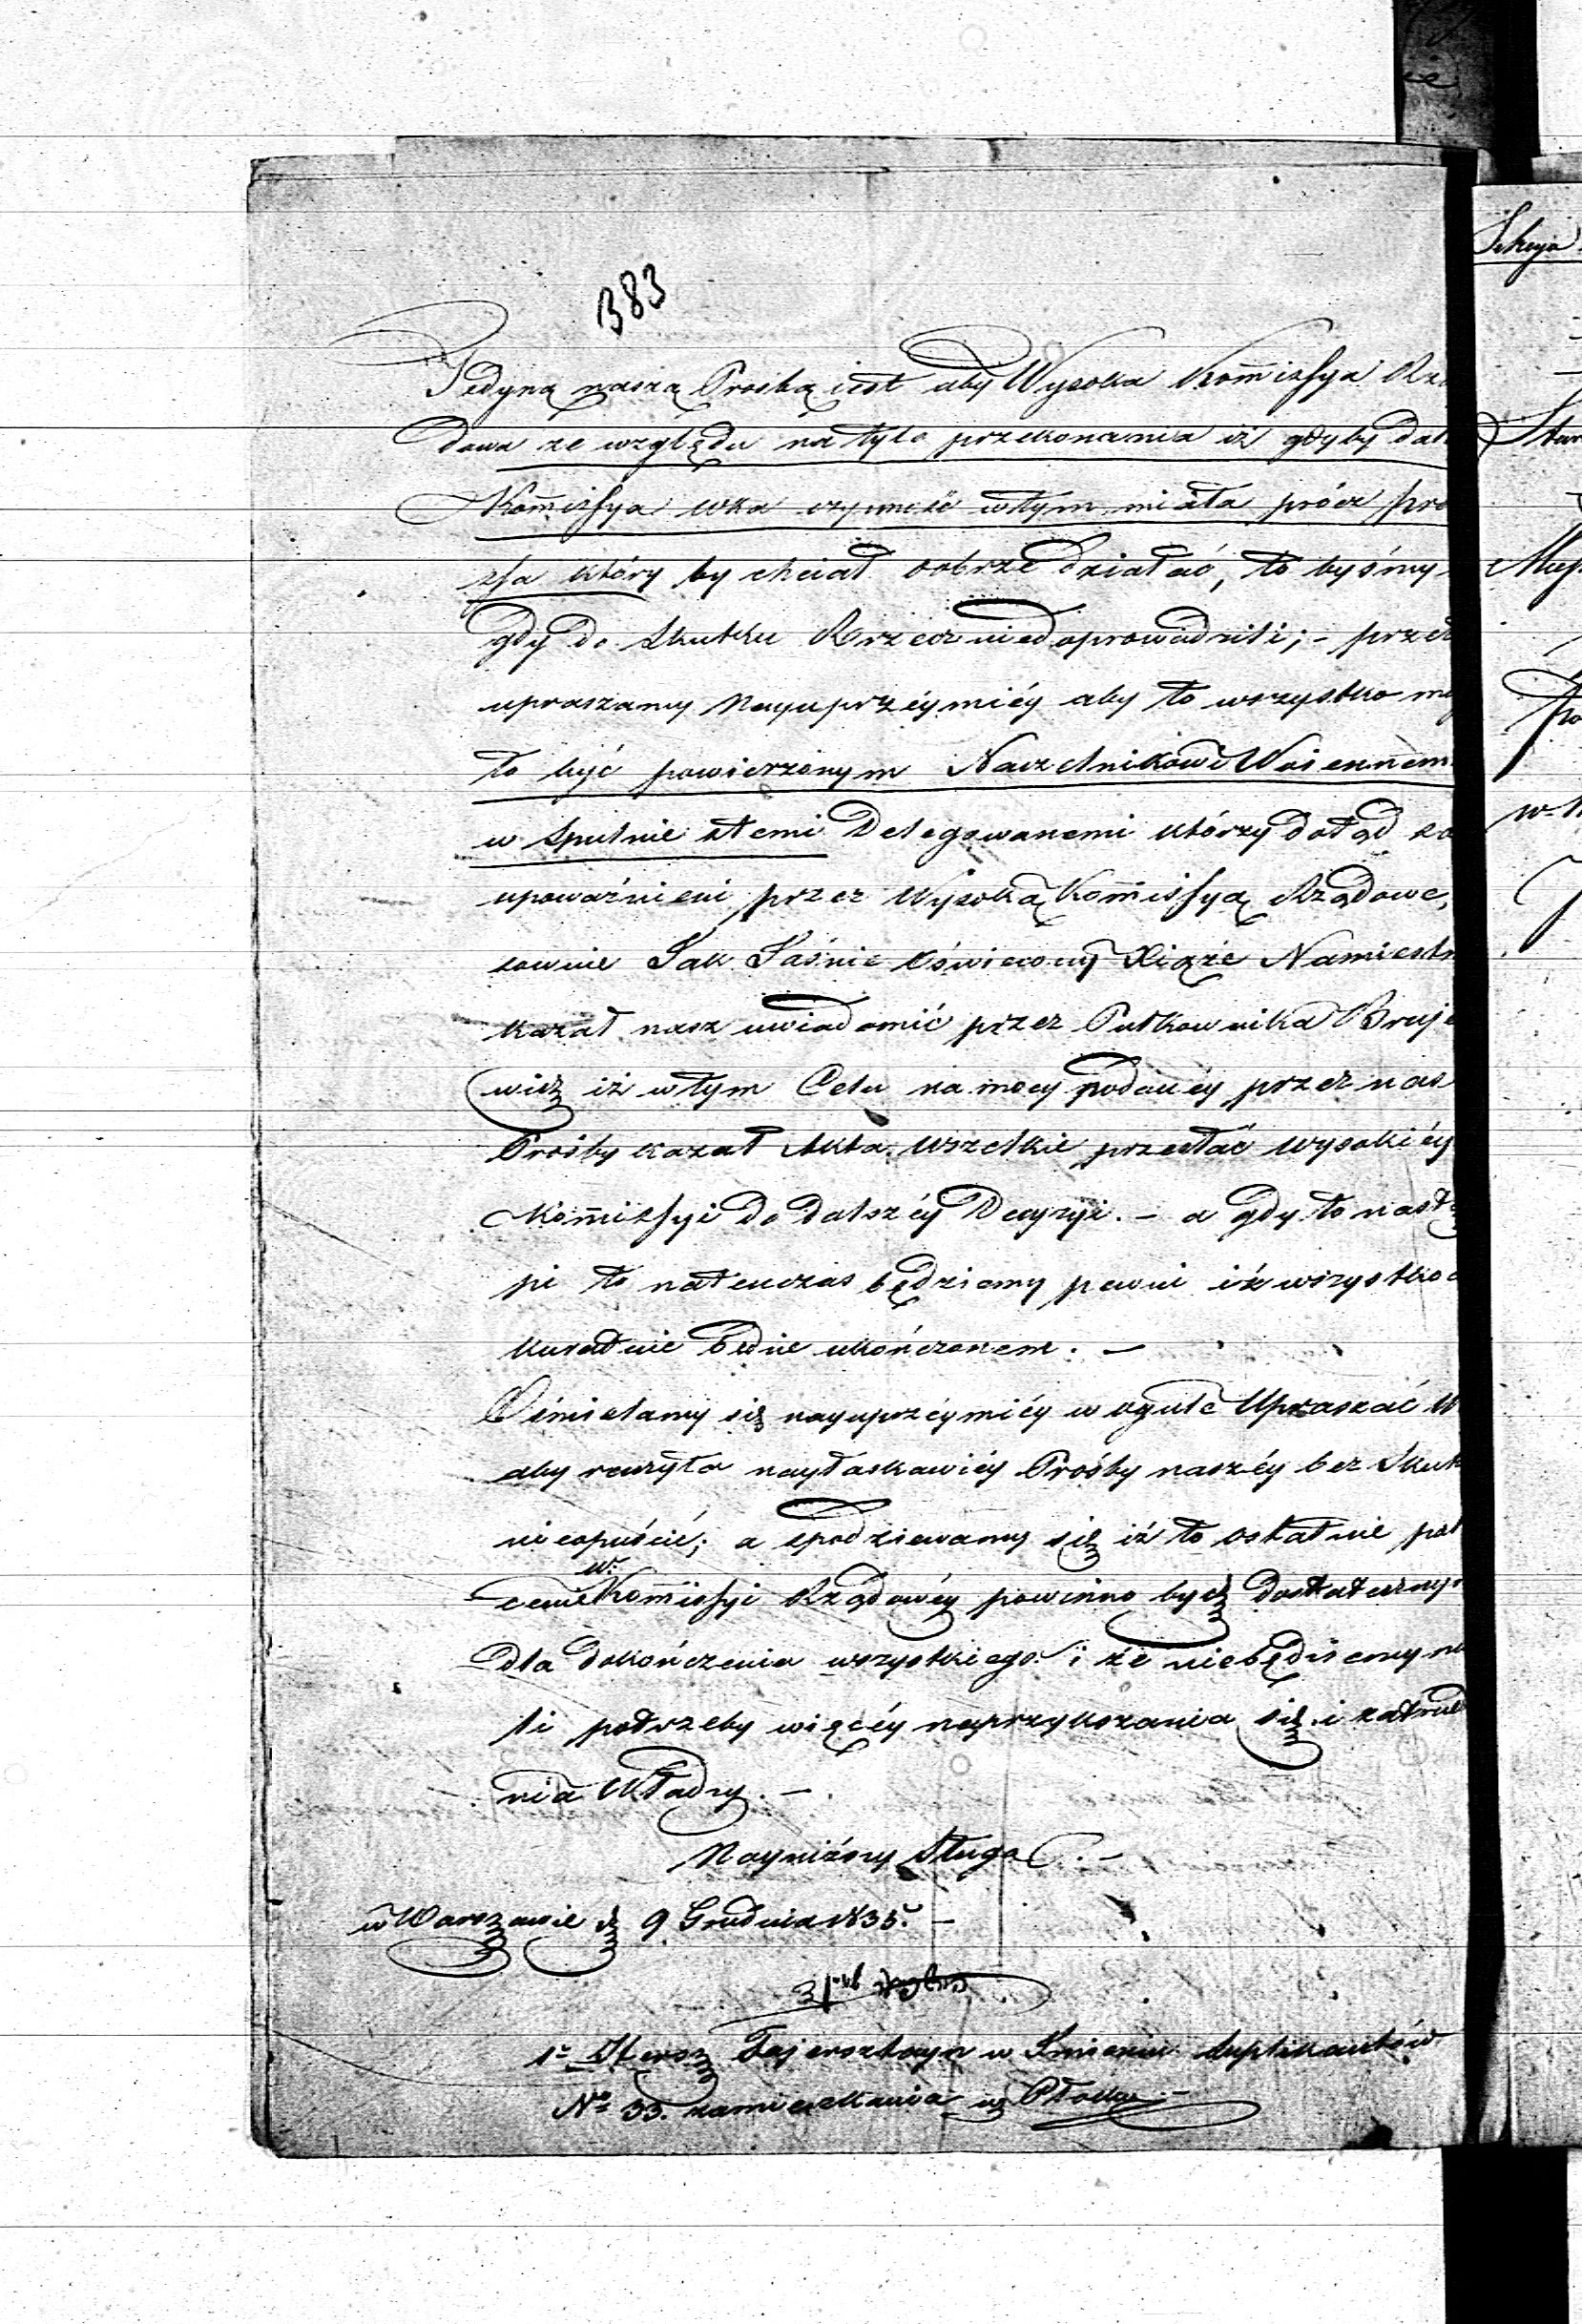 383
Jedyną naszą Prośbą iest aby Wysoka Kom̄issya Rzą
dowa ze względu na tyle przekonania iż gdyby
Kom̄issya wza czynność w tym miała prócz
który by chciał dobrze działać, to byśmy
gdy do skutku Rzecz niedoprowadzili; -
upraszamy Nayuprzéymiéy aby to wszystko
to być powierzonym Naczelnikowi Woiennem
w spulnie ztemi Delegowanemi którzy dotąd
upoważnieni przez Wysoką Kom̄issyą Rządowe,
Jak Jaśnie Oświecony Xiąże Namiestn
kazał nasz uwiadomić przez Pułkownika
wicz iż w tym Celu na mocy podanéy przez nas
Prośby kazał Akta wszelkie przesłać wysokiéy
Kom̄issyi do dalszéy Decyzyi. - a gdy to nastą
pi to natenczas będziemy pewni iż wszystko a
kuratnie będzie ukończonem. -
Ośmielamy się nayuprzéymiéy w ogule Upraszać
aby raczyła nayłaskawiéy Prośby naszéy bez Skut
nieopuścić; a spodziewamy się iż to ostatnie pol
cenie w. Kom̄issyi Rządowéy powinno bydź dostateczny
dla dokończenia wszystkiego i że niebędziemy mi
li potrzeby więcéy naprzykszania się i zatrud
nia Władzy. -
Nayniższy Sługa. -
w Warszawie d 9 Grudnia 1835. -
1o Hersz Fajersztayn w Imieniu Suplikantów
No 33. zamieszkania w Płocku -
Sekcja